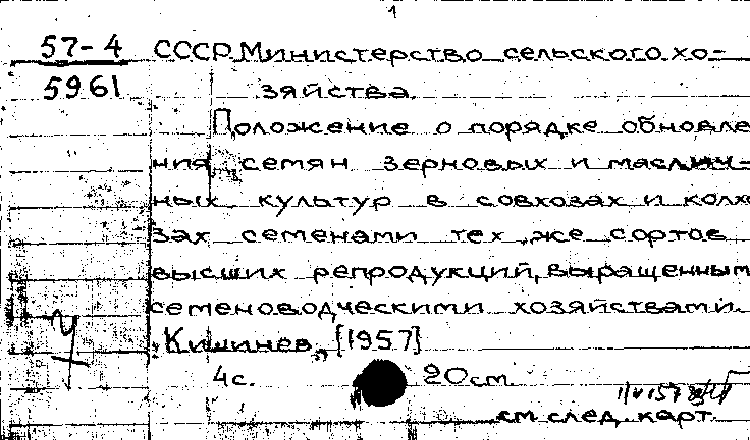 1
57-4 СССР. Министерство сельского хо-
5961 зяйства.
Положение о порядке обновле
ния семян зерновых и маслич-
ных культур в совхозах и колх
зах семенами тех же сортов
высших репродукций, выращенным
семеноводческими хозяйствами.
Кишинев, [1957]
4с. 20см.
см след. карт.